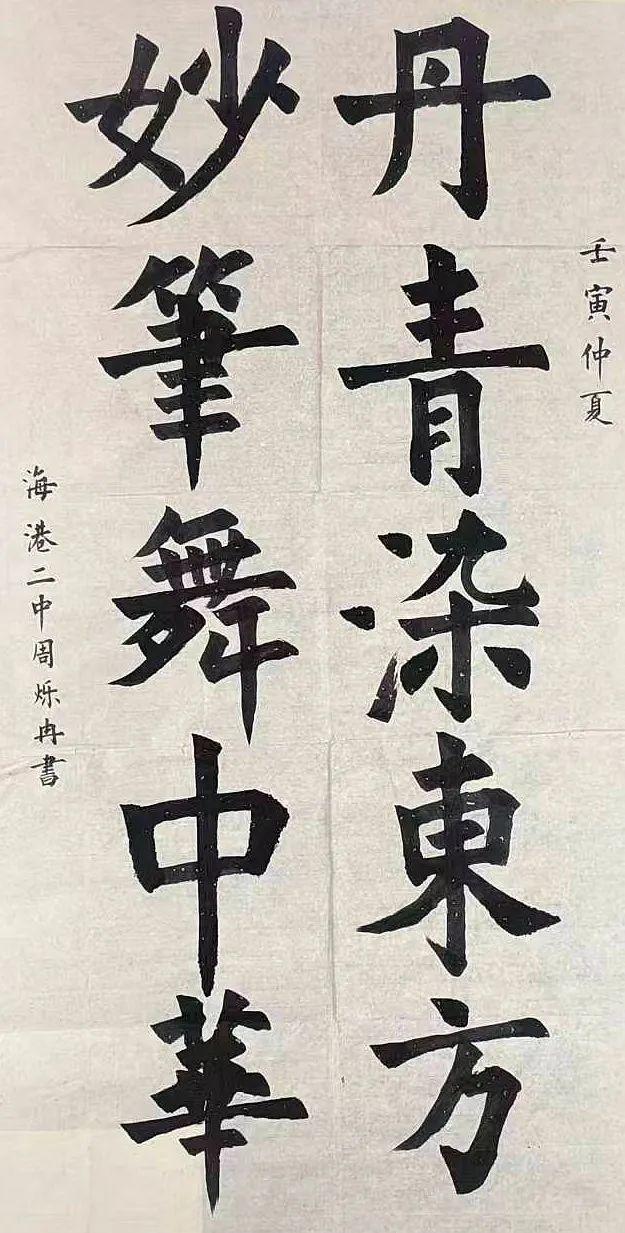 壬寅仲夏
丹青染東方
妙筆舞中華
海港二中周烁冉書